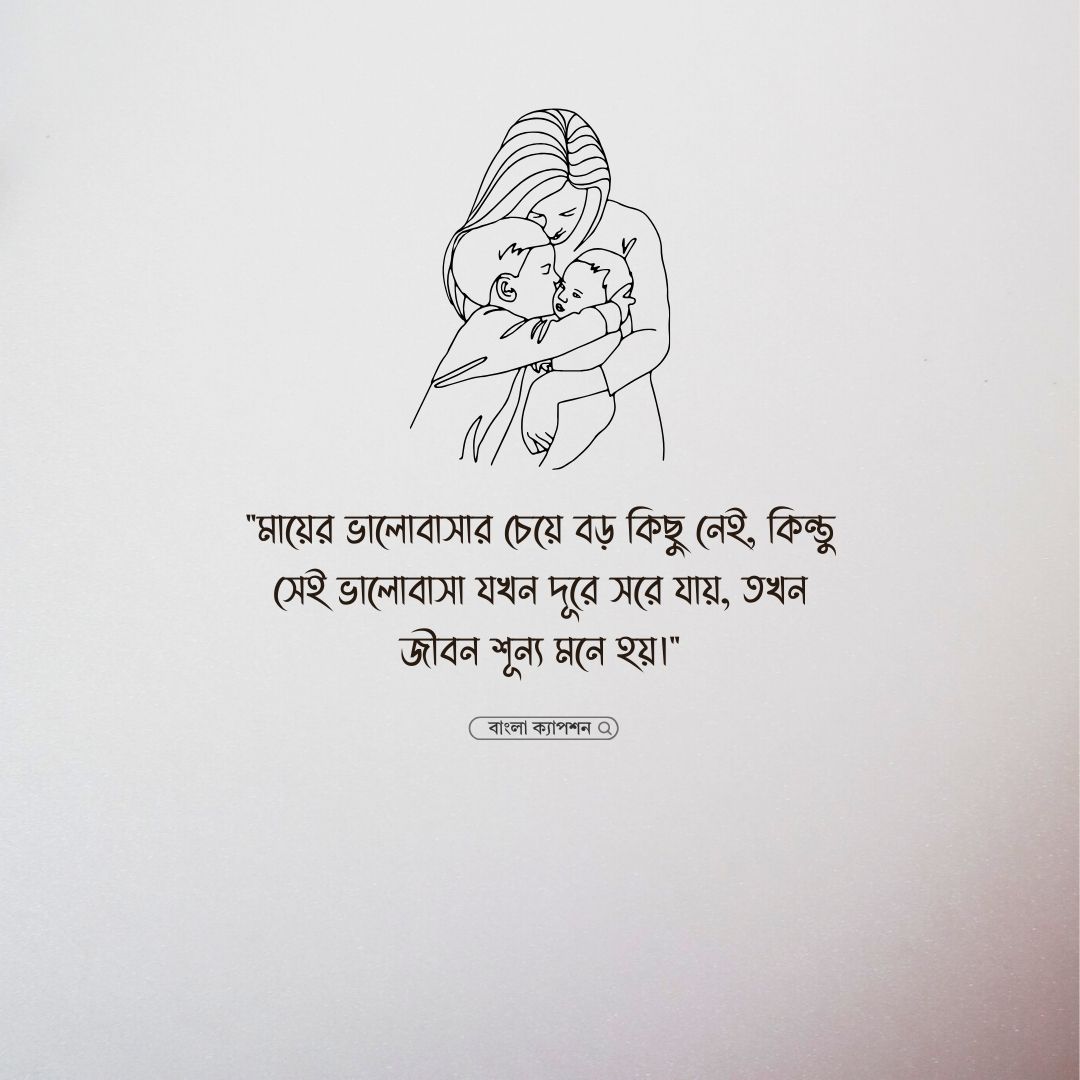 "মায়ের ভালোবাসার চেয়ে বড় কিছু নেই, কিন্তু
সেই ভালোবাসা যখন দূরে সরে যায়, তখন
জীবন শূন্য মনে হয়।"
বাংলা ক্যাপশন